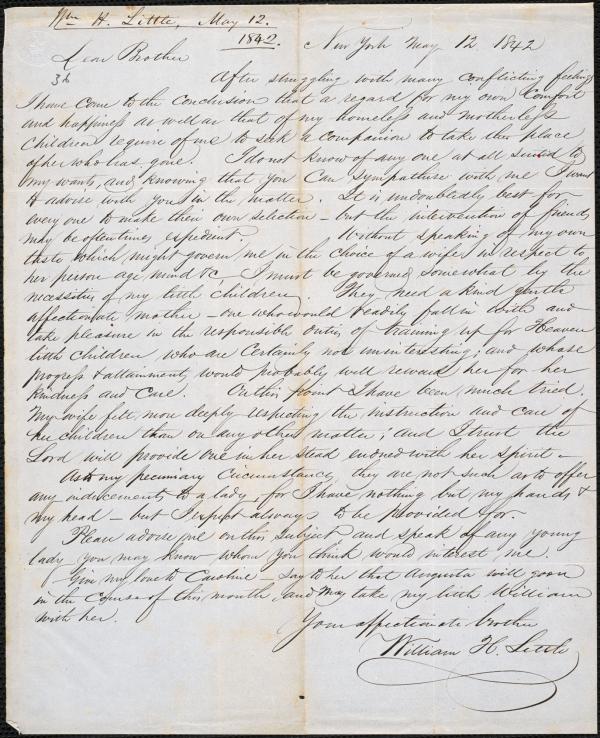 Wm H. Little, May 12.
1842.
New York May 12 1842
Dear Brother
After struggling with many conflicting feelings
I have come to the conclusion that a regard for my own comfort
and happiness as well as that of my homeless and motherless
children require of me to seek a companion to take the place
of her who has gone. I do not know of any one at all suited to
my wants, and knowing that you can sympathise with me I want
to advise with you in the matter. It is undoubtedly best for
every one to make their own selection – but the intervention of friends
may be oftentimes expedient. Without speaking of my own
taste which might govern me in the choice of a wife, in respect to
her person age mind &c I must be governed somewhat by the
necessities of my little children. They need a kind gentle
affectionate mother – one who would readily fall in with and
take pleasure in the responsible duties of training up for Heaven
little children who are certainly not uninteresting; and whose
progress & attainments would probably well reward her for her
kindness and care. On this point I have been much tried.
My wife felt more deeply respecting the instruction and care of
her children than on any other matter; and I trust the
Lord will provide one in her stead endued with her spirit –
As to my pecuniary circumstances they are not such as to offer
any inducements to a lady, for I have nothing but my hands &
my head – but I expect always to be provided for.
Please advise me on this subject and speak of any young
lady you may know whom you think would interest me.
my love to Caroline – say to her that Augusta will go on
in the course of this month, and may take my little William
with her.
Your affectionate brother
William H. Little